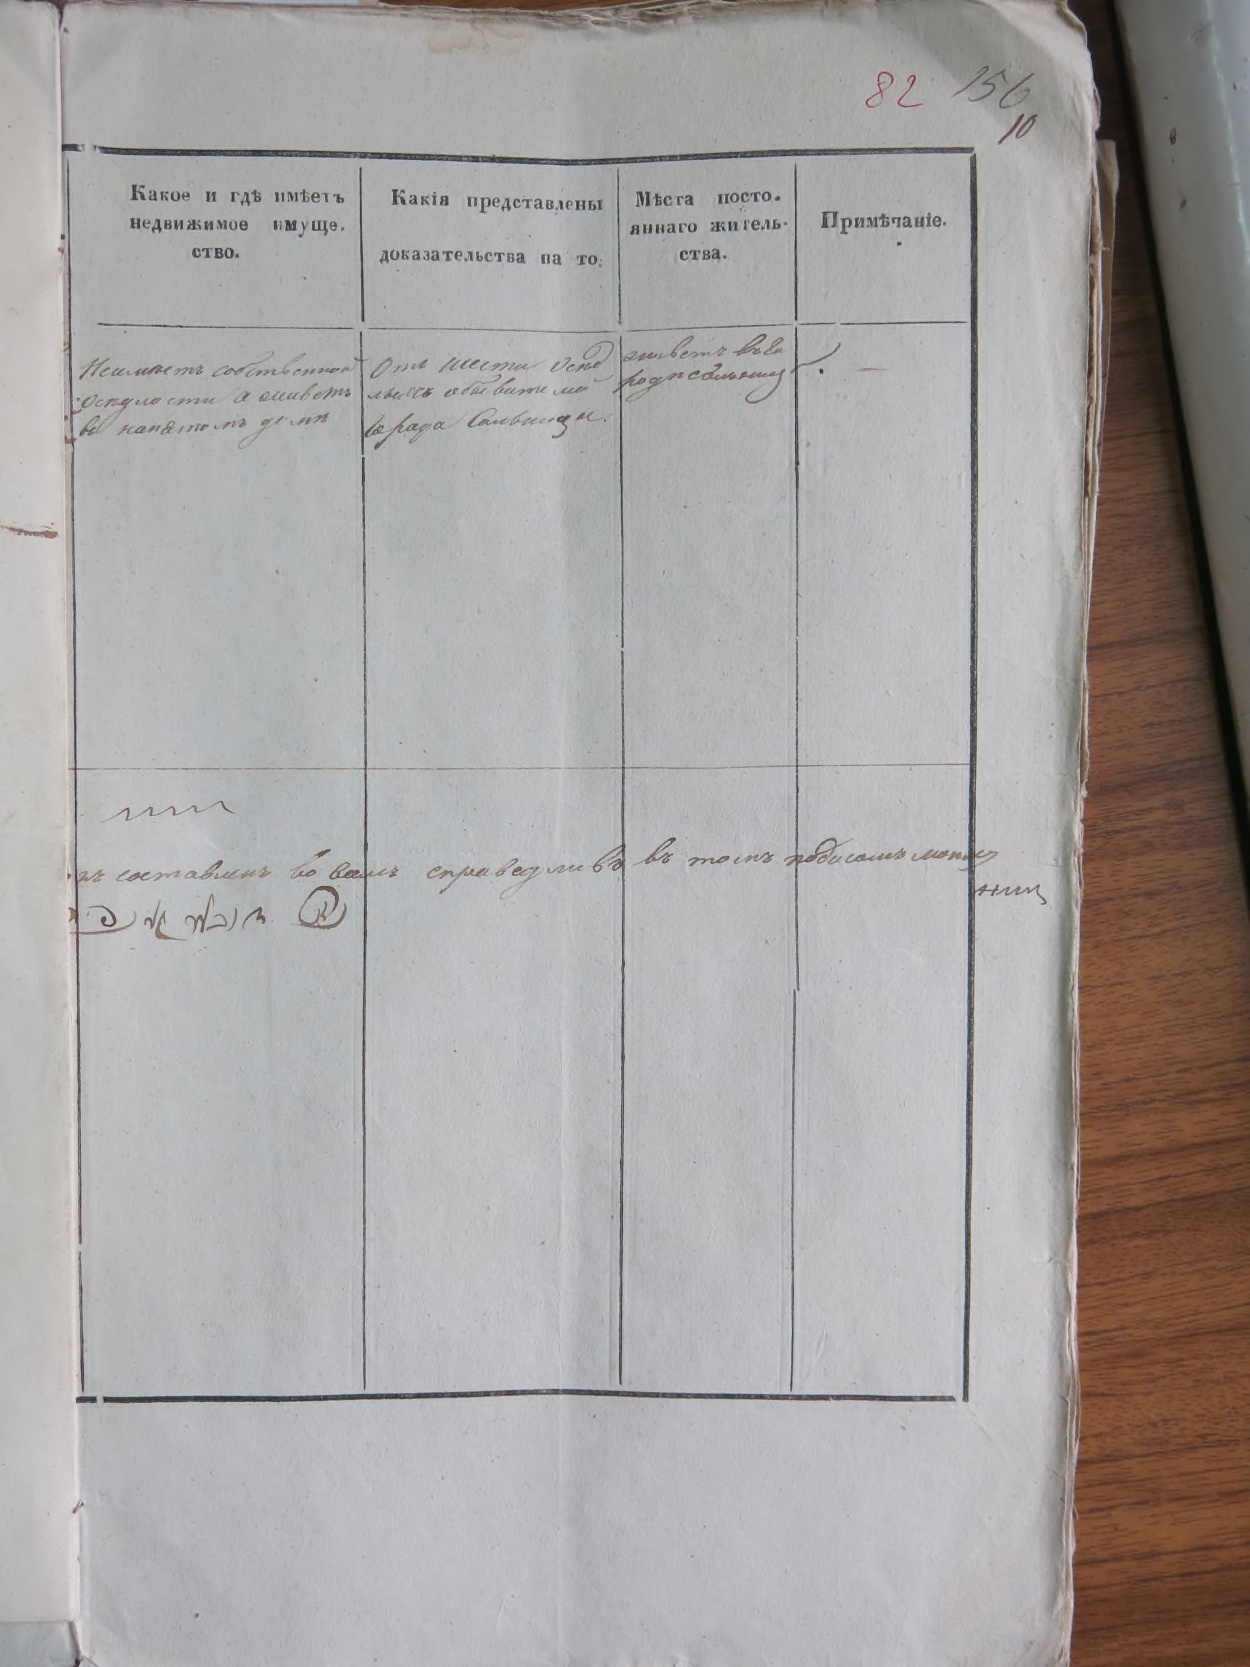 82 156
10
Какое и гдѣ имѣетъ
недвижимое имуще.
ство.
Какія представлены
доказательства на то.
Мѣста посто.
яннаго житель.
ства.
Примѣчаніе.
Неимѣетъ собственной
оседлости а живетъ
въ нанятомъ доме
Отъ шести осед
лыхъ обывателей
города Сальницы.
живетъ въ го
роде Сальницы
составленъ во всемъ справедливо въ томъ